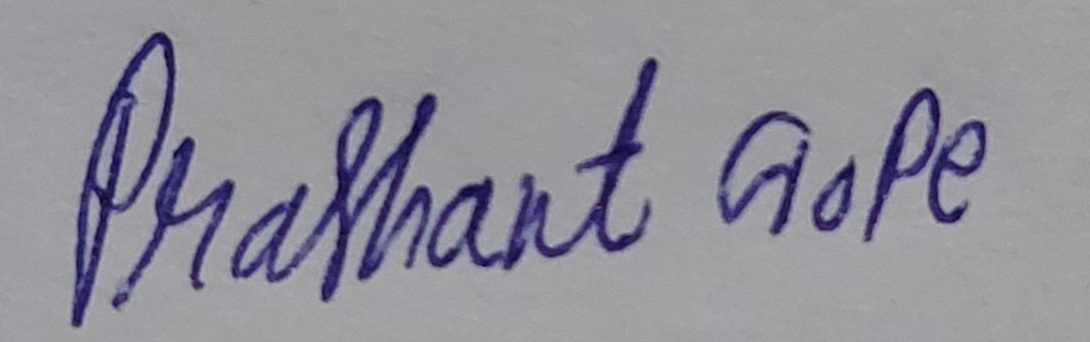 Prashant Gope